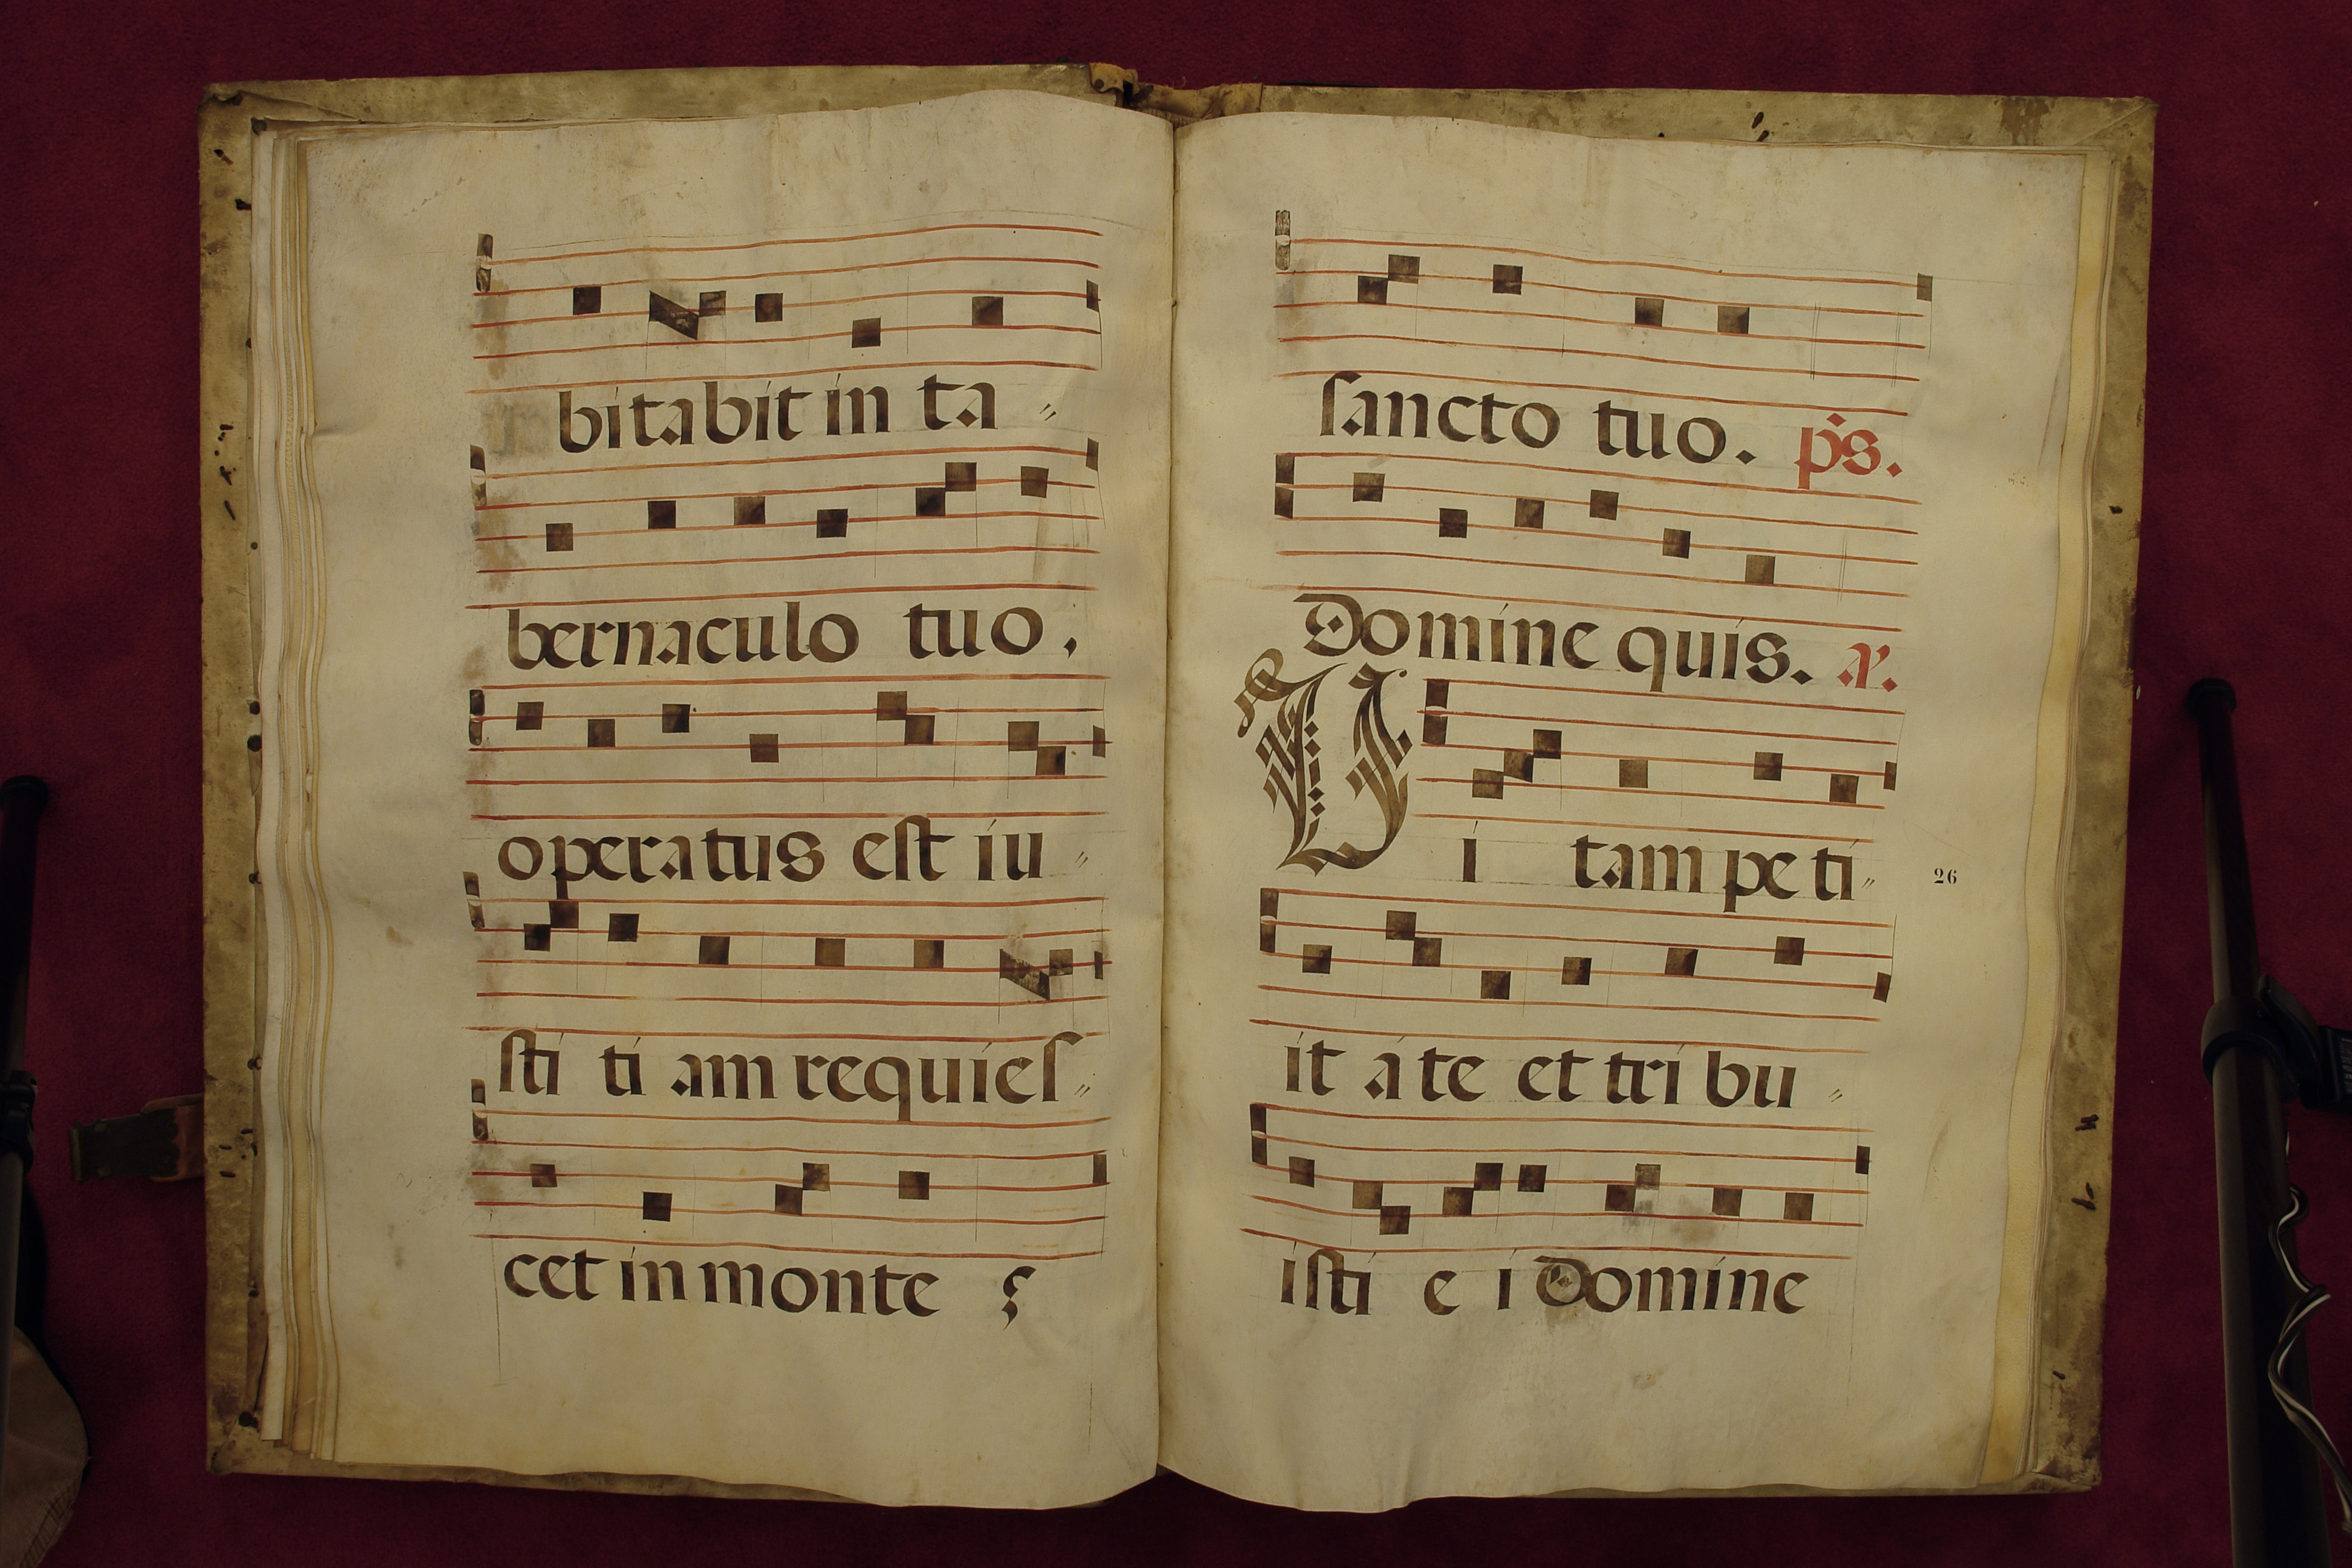 bitabit in ta〃
bernaculo tuo.
operatus est iu〃
sti ti am requies〃
cet in monte
sancto tuo. p̄s.
Domine quis. a.
Vi tam pe ti〃
26
it a te et tri bu〃
isti e i Domine